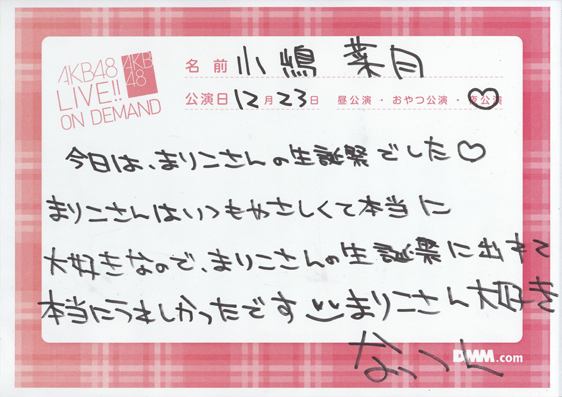 AKB48
LIVE!!
ON DEMAND
AKB
48
名前 小嶋 菜月
公演日 12月23日 昼公演・おやつ公演・夜公演
今日は、まりこさんの生誕祭でした♡
まりこさんはいつもやさしくて本当に
大好きなので、まりこさんの生誕祭に出れて
本当にうれしかったです まりこさん大好き
なっつん
DMM.com